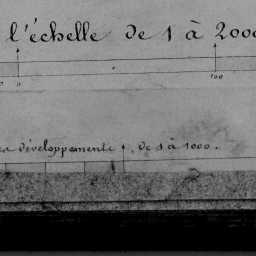 l'échelle de 1 à 2000
0 100
développements, de 1 à 1000.